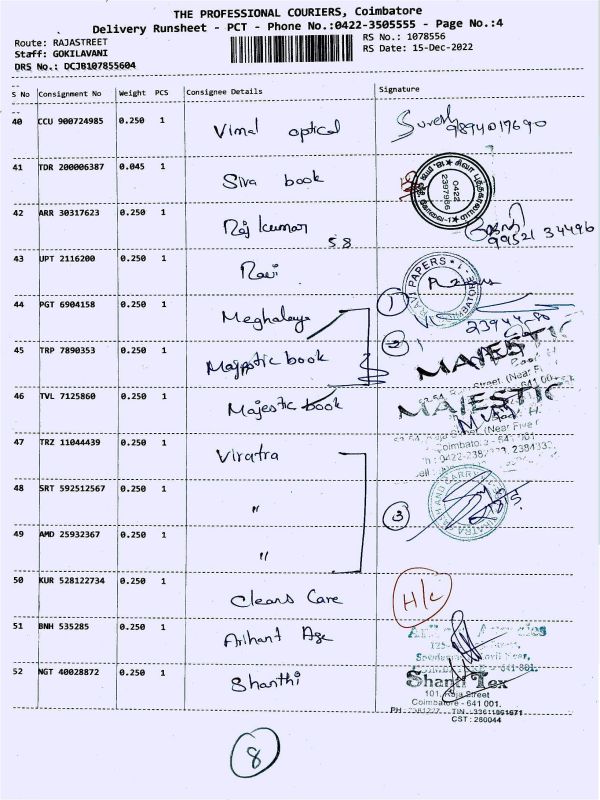 THE PROFESSIONAL COURIERS, Coimbatore
Delivery Runsheet - PCT - Phone No.:0422-3505555 - Page No.:4
Route: RAJASTREET
RS No.: 1078556
Staff: GOKILAVANI
RS Date: 15-Dec-2022
DRS No.: DCJB107855604
S No Consignment No Weight PCS Consignee Details Signature
40 CCU 900724985 0.250 1 Vimal optical Suresh 9894019690
41 TDR 200006387 0.045 1 Siva book
0422 2397986
42 ARR 30317623 0.250 1 Raj kumar 58 99521 34496
43 UPT 2116200 0.250 1 Ravi
RAVI PAPERS
44 PGT 6904158 0.250 1 Meghalaya 1
23944
45 TRP 7890353 0.250 1 Majestic book 2 MAJESTIC
46 TVL 7125860 0.250 1 Majestic book MAJESTIC
(Near Five
47 TRZ 11044439 0.250 1 Viratra
48 SRT 592512567 0.250 1 "
3
49 AMD 25932367 0.250 1 "
50 KUR 528122734 0.250 1 Clears Care H/c
51 BNH 535285 0.250 1 Arihant Age
52 NGT 40028872 0.250 1 Shanthi
Shanti Tex
101, Raja Street
Coimbatore - 641 001.
CST : 280044
8